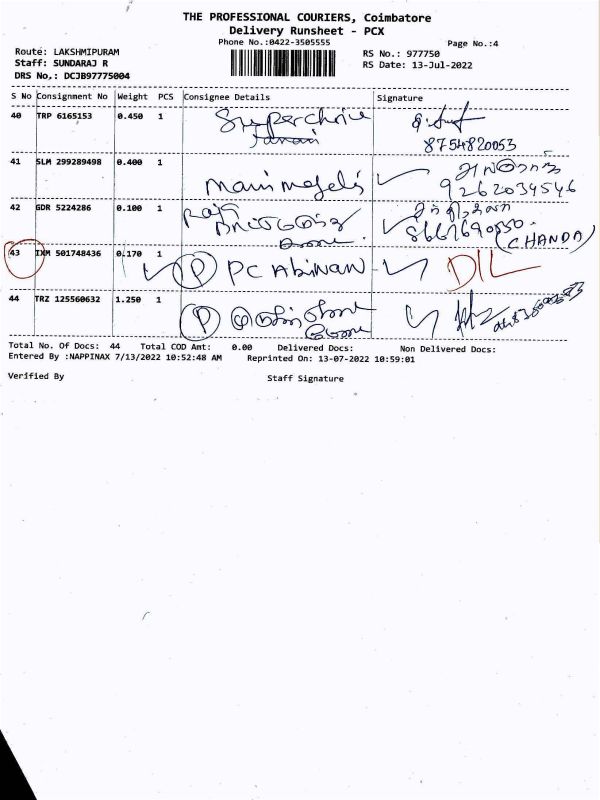 THE PROFESSIONAL COURIERS, Coimbatore
Delivery Runsheet - PCX
Phone No.:0422-3505555
Page No.:4
Route: LAKSHMIPURAM
RS No.: 977750
Staff: SUNDARAJ R
RS Date: 13-Jul-2022
DRS No,: DCJB97775004
S No Consignment No Weight PCS Consignee Details Signature
40 TRP 6165153 0.450 1 Superchoice
8754820053
41 SLM 299289498 0.400 1
9262034546
42 GDR 5224286 0.100 1
(CHANDA)
43 IXM 501748436 0.170 1 P PC Abinan DIL
44 TRZ 125560632 1.250 1 P
Total No. Of Docs: 44 Total COD Amt: 0.00 Delivered Docs: Non Delivered Docs:
Entered By :NAPPINAX 7/13/2022 10:52:48 AM Reprinted On: 13-07-2022 10:59:01
Verified By Staff Signature